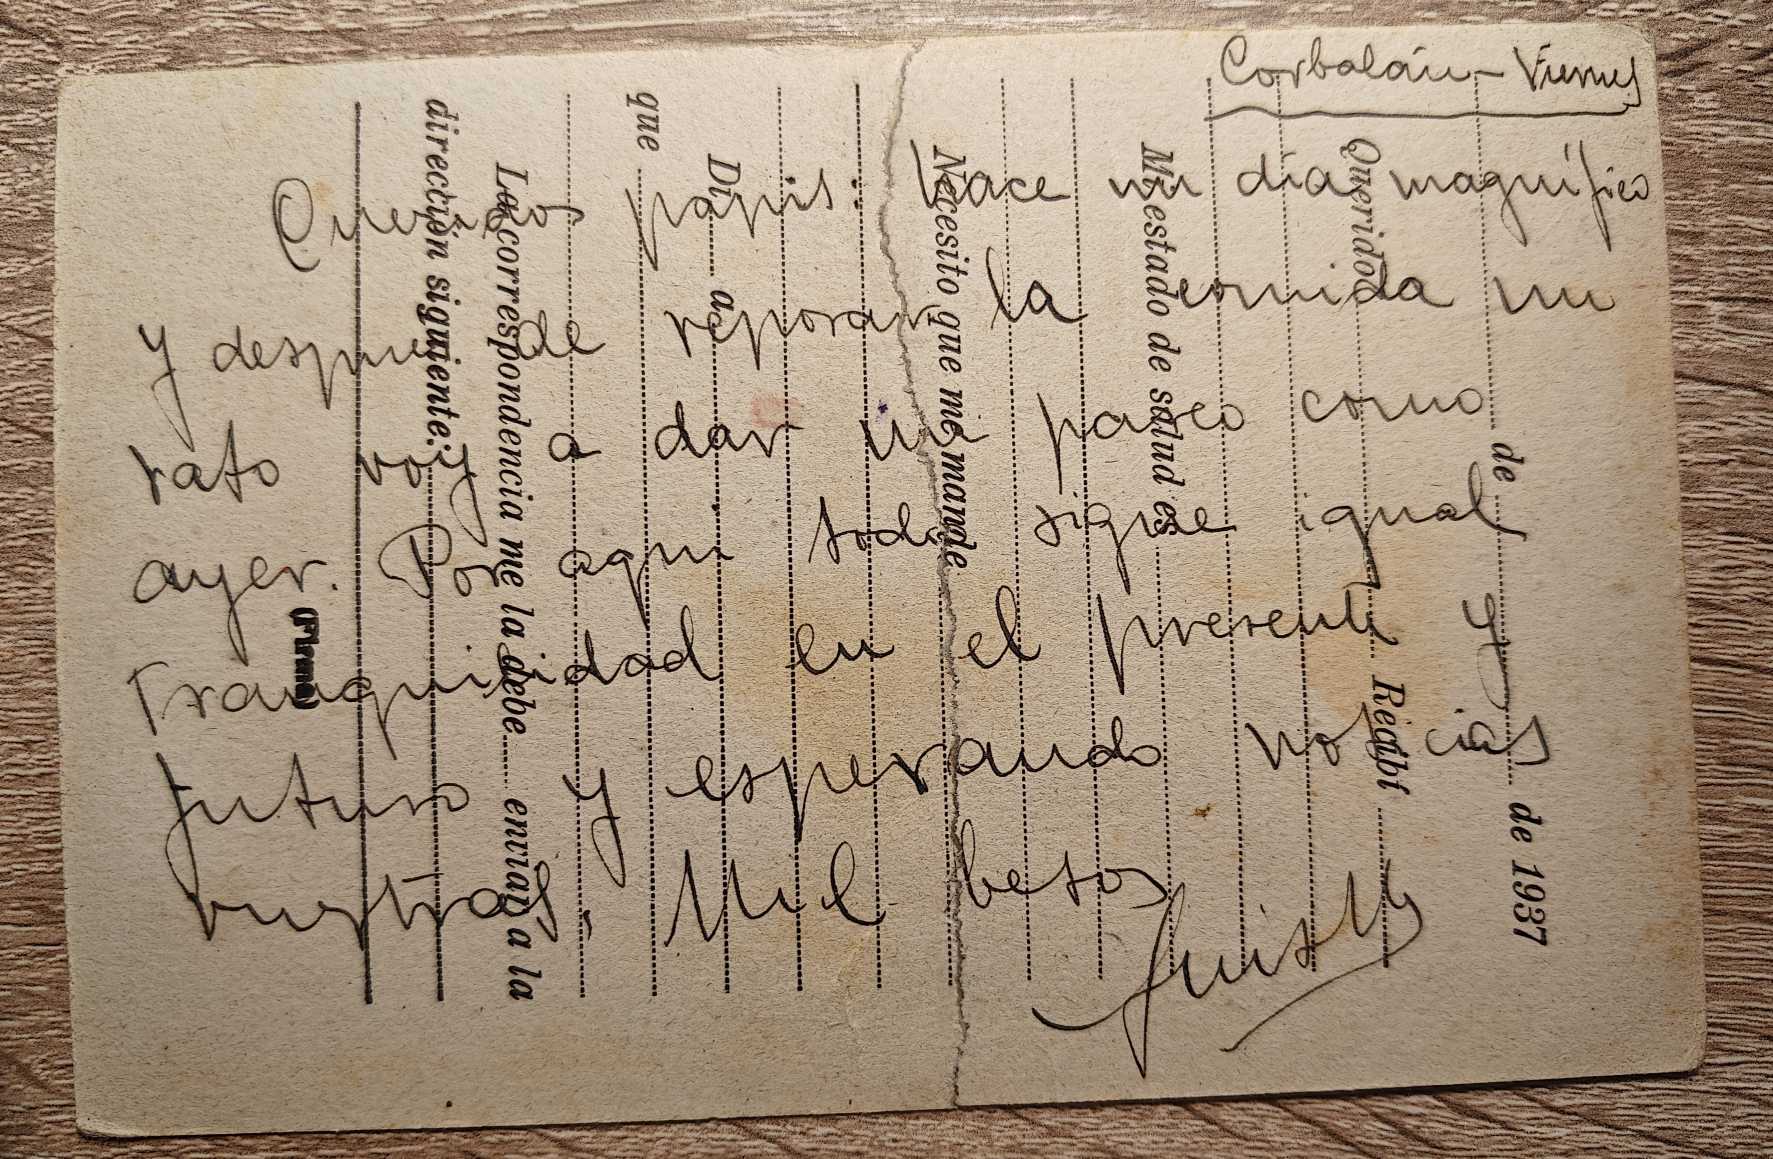 Corbalán - Viernes
Queridos papis: Hace un día magnífico
y despues de reposar la comida un
rato voy a dar un paseo como
ayer. Por aqui todo sigue igual
Tranquilidad en el presente y
futuro y esperando noticias
vuestras. Mil besos
Luis
de de 1937
Querido Recibí
Mi estado de salud es
Necesito que me mande
Di a
que
La correspondencia me la debe enviar a la
dirección siguiente:
(Firma)